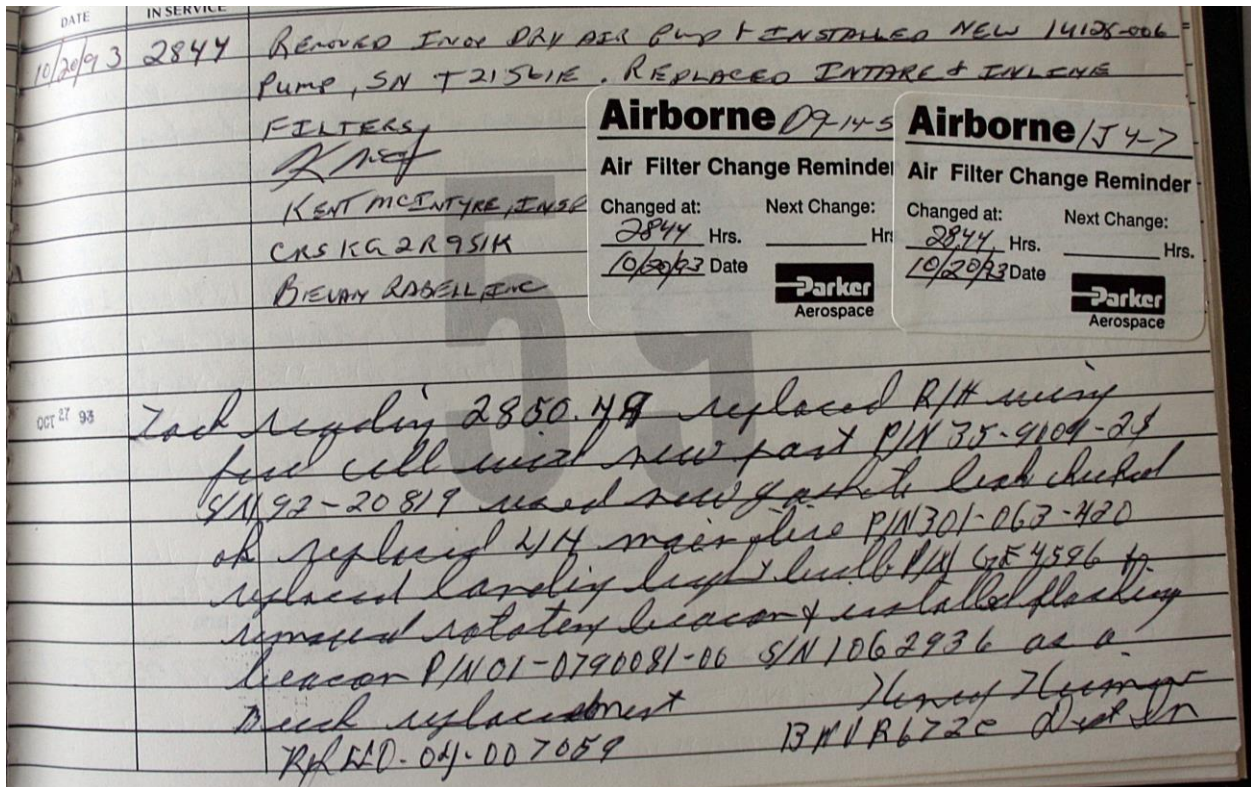 DATE
IN SERVICE
10/20/93 2844 REMOVED INOP DRY AIR PUMP & INSTALLED NEW 1412S-006
PUMP, SN T21561E. REPLACED INTAKE & INLINE
FILTERS,
KENT MCINTYRE, INSP
CRS KG2R951K
BIEVAN RABELL, INC
Airborne D9-14-5
Air Filter Change Reminder
Changed at: Next Change:
2844 Hrs. Hrs
10/20/93 Date
Parker
Aerospace
Airborne 1J4-7
Air Filter Change Reminder
Changed at: Next Change:
2844 Hrs. Hrs.
10/20/93 Date
Parker
Aerospace
59
OCT 27 93 Tach reading 2850.48 replaced R/H wing
fuel cell with new part P/N 35-9009-2
S/N 92-20819 used new gaskets leak checked
ok replaced L/H main tire P/N 301-063-420
replaced landing light bulb P/N GE4596
removed rotating beacon & installed flashing
beacon P/N 01-0790081-00 S/N 1062936 as a
Beech replacement
BMVR672C
04-007059